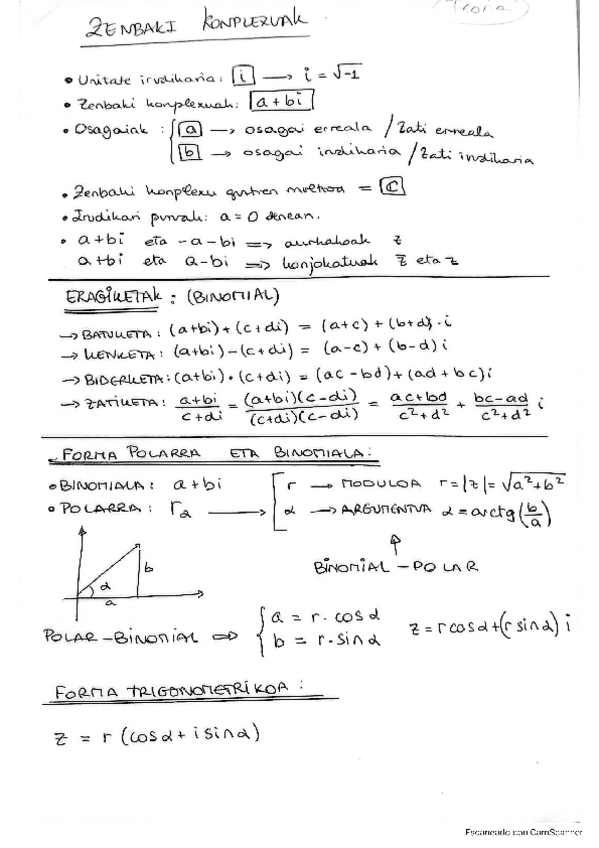 (Teoria)
ZENBAKI KONPLEXUAK
• Unitate irudikaria: i → i = √-1
• Zenbaki konplexuak: a + bi
• Osagaiak : { a → osagai erreala / Zati erreala
b → osagai irudikaria / Zati irudikaria
• Zenbaki konplexu guztien multzoa = ℂ
• Irudikari puruak: a = 0 denean.
• a+bi eta -a-bi => aurkakoak z
a+bi eta a-bi => konjokatuak z̄ eta z
ERAGIKETAK : (BINOMIAL)
→ BATUKETA : (a+bi)+(c+di) = (a+c) + (b+d)·i
→ KENKETA : (a+bi)-(c+di) = (a-c) + (b-d) i
→ BIDERKETA : (a+bi)·(c+di) = (ac-bd)+(ad+bc)i
→ ZATIKETA : (a+bi)/(c+di) = (a+bi)(c-di)/(c+di)(c-di) = (ac+bd)/(c²+d²) + (bc-ad)/(c²+d²) i
- FORMA POLARRA ETA BINOMIALA :
• BINOMIALA : a+bi [ r → MODULOA r = |z| = √a²+b²
• POLARRA : rα → α → ARGUMENTUA α = arctg (b/a)
BINOMIAL - POLAR
α
a
b
POLAR-BINOMIAL => { a = r · cosα
b = r · sinα
z = r cosα + (r sinα) i
FORMA TRIGONOMETRIKOA :
z = r (cosα + i sinα)
Escaneado con CamScanner